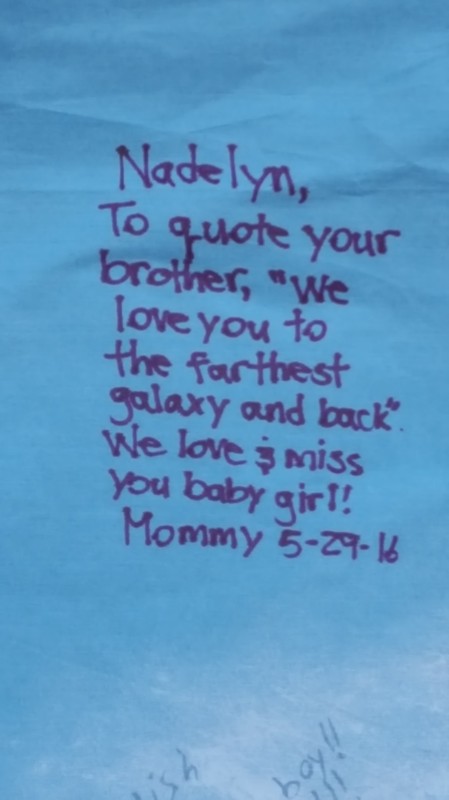 Nadelyn,
To quote your
brother, "We
love you to
the farthest
galaxy and back".
We love & miss
you baby girl!
Mommy 5-29-16
boy!!